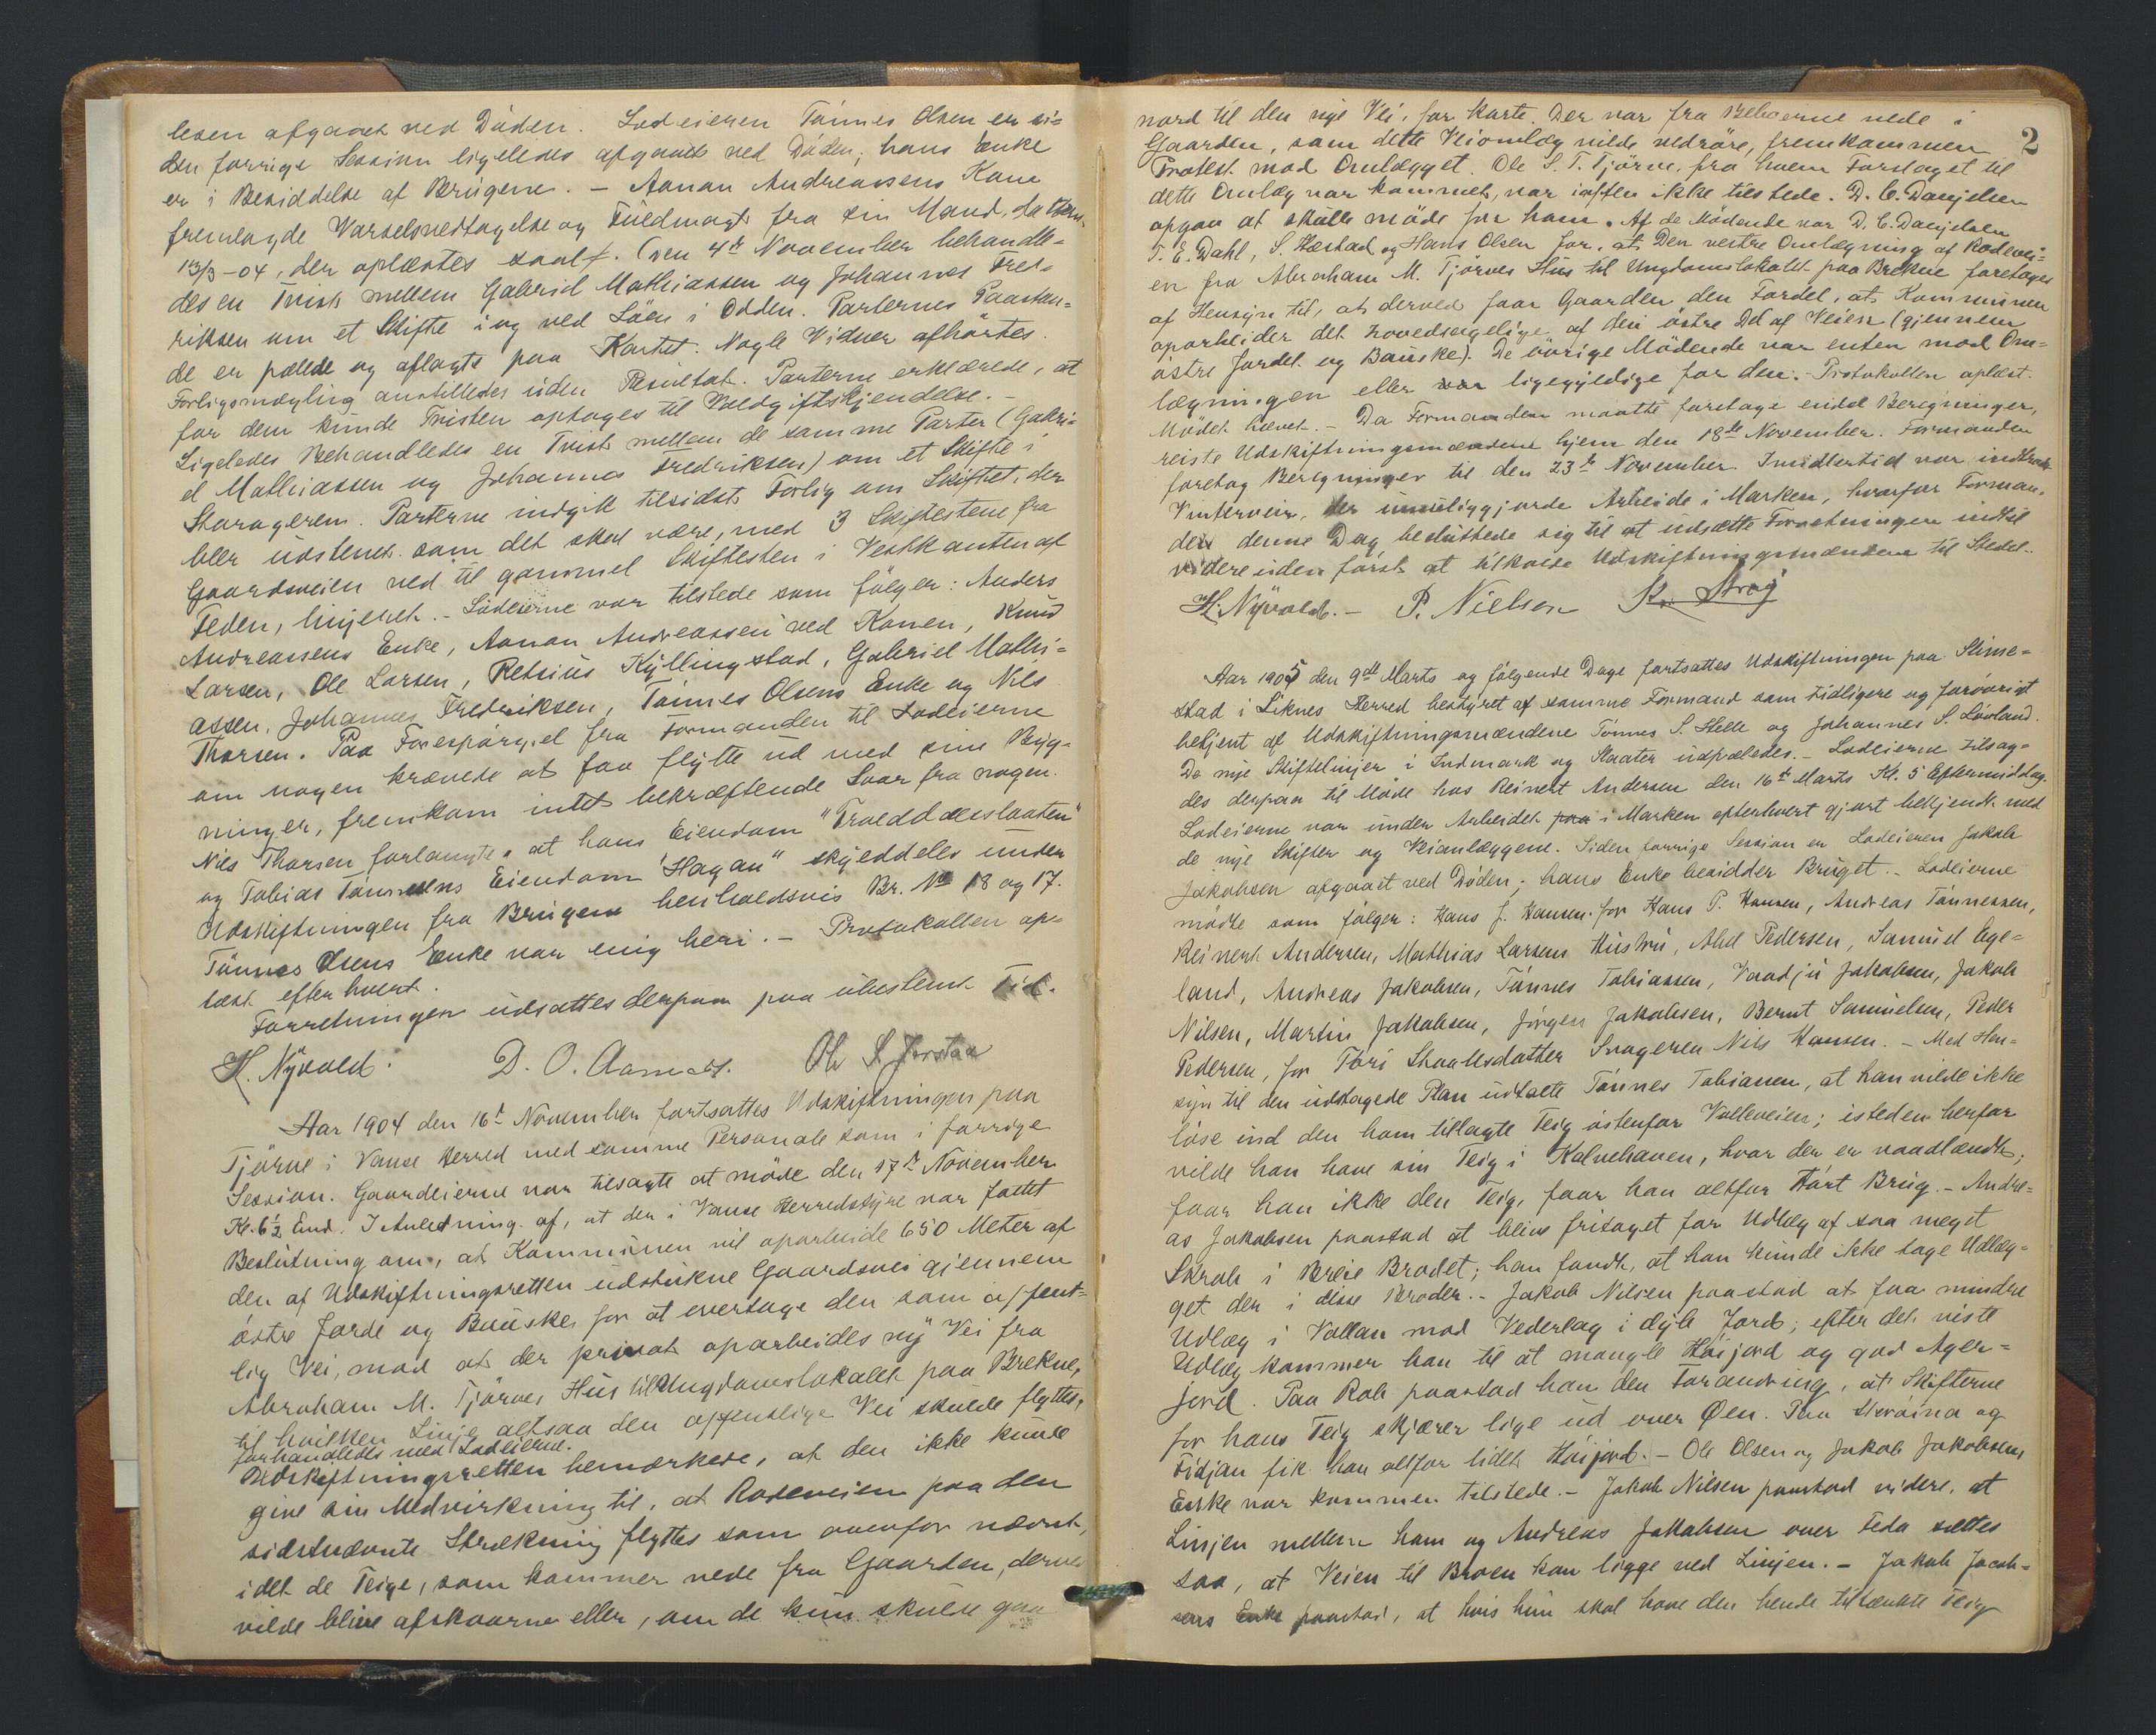 lesen afgaaet ved Döden. Lodeieren Tönnes Olsen er si-
den forrige Session ligeledes afgaaet ved Döden; hans Enke
er i Besiddelse af Brugene. - Aanan Andreassens Kone
fremlagde Varselsvedtagelse og Fuldmagt fra sin Mand, dateret
13/3-04, der oplæstes saalt. Den 4de November behandle-
des en Tvist mellem Gabriel Mathiassen og Johannes Fred-
riksen om et Skifte i og ved Löen i Odden. Parternes Paastan-
de er pælede og aflagte paa Kartet. Nogle Vidner afhörtes.
Forligsmægling anstilledes uden Resultat. Parterne erklærede, at
for dem kunde Tvisten optages til Voldgiftskjendelse. -
Ligeledes Behandledes en Tvist mellem de samme Parter (Gabri-
el Mathiassen og Johannes Fredriksen) om et Skifte i
Storageren. Parterne indgik tilsidst Forlig om Skiftet, der
blev udstenet som det skal være, med 3 Skiftestene fra
Gaardsveien ned til gammel Skiftesten i Vestkanten af
Feden, linjeret. - Lodeierne var tilstede som fölger: Anders
Andreassens Enke, Aanan Andreassen ved Konen, Knud
Larsen, Ole Larsen, Retsius Kyllingstad, Gabriel Mathi-
assen, Johannes Fredriksen, Tönnes Olsens Enke og Nils
Thorsen. Paa Forespörgsel fra Formanden til Lodeierne
om nogen krævede at faa flytte ud med sine Byg-
ninger, fremkom intet bekræftende Svar fra nogen.
Nils Thorsen forlangte, at hans Eiendom "Troeddeslaaten"
og Tobias Tönnesens Eiendom "Hagan" skyeddeles under
Udskiftningen fra Brugene henholdsvis Br. No 18 og 17.
Tönnes Olsens Enke var enig heri. - Protokollen op-
læst efterhvert.
Forretningen udsattes derpaa paa ubestemt Tid.
H. Nyvold. D. O. Aamodt. Ole S. Jerstad
Aar 1904 den 16de November fortsattes Udskiftningen paa
Tjörve i Vanse Herred med samme Personale som i forrige
Session. Gaardeierne var tilsagte at möde den 17de November
Kl. 6½ Emd. I Anledning af, at der i Vanse Herredstyre var fattet
Beslutning om, at Kommunen vil oparbeide 650 Meter af
den af Udskiftningsretten udstukne Gaardsvei gjennem
östre Jorde og Bauske for at overtage den som offent-
lig Vei, mod at der privat oparbeides ny Vei fra
Abraham M. Tjörves Hus til Ungdomslokalet paa Brekne,
til hvilken Linje altsaa den offentlige Vei skulde flyttes,
forhandledes med Lodeierne.
Udskiftningsretten bemærkede, at den ikke kunde
give sin Medvirkning til, at Rodeveien paa den
sidstnævnte Strækning flyttes som ovenfor nævnt,
idet de Teige, som kommer nede fra Gaarden, derved
vilde blive afskaarne eller, om de kun skulde gaa
2
nord til den nye Vei, for korte. Der var fra Beboerne nede i
Gaarden, som dette Veiomlæg vilde vedröre, fremkommen
Protest mod Omlægget. Ole S. T. Tjörve, fra hvem Forslaget til
dette Omlæg var kommet, var iaften ikke tilstede. D. C. Danjelsen
opgav at skulle möde for ham. Af de Mödende var D. C. Danjelsen
T. E. Dahl, S. Hestad og Hans Olsen for, at Den vestre Omlægning af Rodevei-
en fra Abraham M. Tjörves Hus til Ungdomslokalet paa Brekne foretages
af Hensyn til, at derved faar Gaarden den Fordel, at Kommunen
oparbeider det hovedsagelige af den östre Del af Veien (gjennem
östre Jordet og Bauske). De övrige Mödende var enten mod Om-
lægningen eller var ligegyldige for den. - Protokollen oplæst.
Mödet hævet. - Da Formanden maatte foretage endel Beregninger,
reiste Udskiftningsmændene hjem den 18de November. Formanden
foretog Beregninger til den 23de November. Imidlertid var indtraadt
Vinterveir, der umuliggjorde Arbeide i Marken, hvorfor Forman-
den denne Dag besluttede sig til at udsætte Forretningen indtil
videre uden först at tilkalde Udskiftningsmændene til Stedet.
H. Nyvold. - P. Nielsen K. Strøj
Aar 1905 den 9de Marts og fölgende Dage fortsattes Udskiftningen paa Stime-
stad i Liknes Herred bestyret af samme Formand som tidligere og forövrigt
betjent af Udskiftningsmændene Tönnes S. Helle og Johannes S. Lövland.
De nye Skiftelinjer i Indmark og Slaater udpæledes. - Lodeierne tilsag-
des derpaa til Möde hos Reinert Andersen den 16de Marts Kl. 5 Eftermiddag.
Lodeierne var under Arbeidet paa i Marken efterhvert gjort bekjendt med
de nye Skifter og Veianlæggene. Siden forrige Session er Lodeieren Jakob
Jakobsen afgaaet ved Döden; hans Enke besidder Bruget. - Lodeierne
mödte som fölger: Hans J. Hansen for Hans P. Hansen, Andreas Tönnessen,
Reinert Andersen, Mathias Larsens Hustru, Abel Pedersen, Samuel Ege-
land, Andreas Jakobsen, Tönnes Tobiassen, Vaadju Jakobsen, Jakob
Nilsen, Martin Jakobsen, Jörgen Jakobsen, Bernt Samuelsen, Peder
Pedersen, for Tori Skaalesdatter Svogeren Nils Hansen. - Med Hen-
syn til den udstagede Plan udtalte Tönnes Tobiassen, at han vilde ikke
löse ind den ham tillagte Teig östenfor Valleveien; isteden herfor
vilde han have sin Teig i Kalvehaven, hvor der er vaadlændt;
faar han ikke den Teig, faar han altfor tört Brug. - Andre-
as Jakobsen paastod at blive fritaget for Udlæg af saa meget
Skrab i Breie Brodet; han fandt, at han kunde ikke tage Udlæg-
get der i disse Broder. - Jakob Nilsen paastod at faa mindre
Udlæg i Vollan mod Vederlag i dyb Jord; efter det viste
Udlæg kommer han til at mangle Höijord og god Ager-
jord. Paa Rob paastod han den Forandring, at Skifterne
for hans Teig skjærer lige ud over Øen. Paa Hvraina og
Fidjan fik han altfor lidet Höijord. - Ole Olsen og Jakob Jakobsens
Enke var kommen tilstede. - Jakob Nilsen paastod videre, at
Linjen mellem ham og Andreas Jakobsen over Feda sættes
saa, at Veien til Broen kan ligge ved Linjen. - Jakob Jacob-
sens Enke paastod, at hvis hun skal have den hende tiltænkte Teig